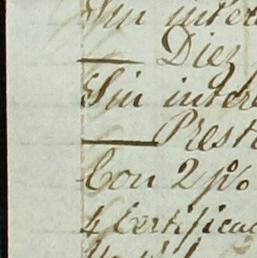 Sin inter
— Diez
Sin intere
— Prest
Con 2 p%
4 Certificac